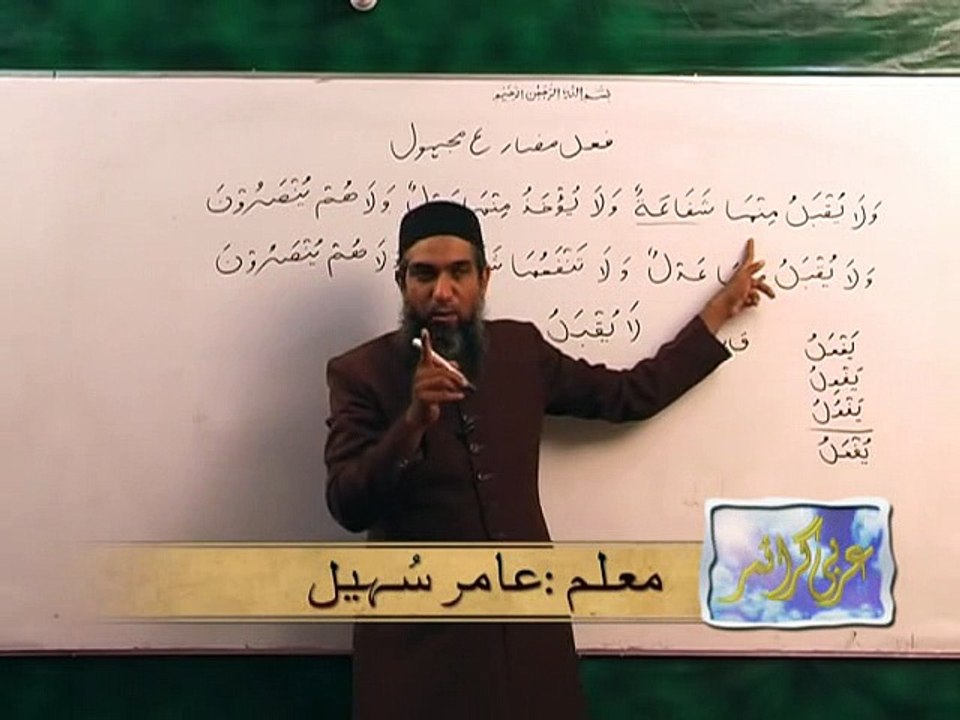 بسم الله الرحمن الرحيم
فعل مضارع مجهول
وَلَا يُقْبَلُ مِنْهَا شَفَاعَةٌ وَلَا يُؤْخَذُ مِنْهَا وَلَا هُمْ يُنْصَرُوْنَ
وَلَا يُقْبَلُ عَدْلٌ وَلَا تَنْفَعُهَا وَلَا هُمْ يُنْصَرُوْنَ
لَا يُقْبَلُ
يَفْعَلُ
يَفْعِلُ
يَفْعُلُ
يُفْعَلُ
عربی گرائمر
معلم :عامر سُہیل